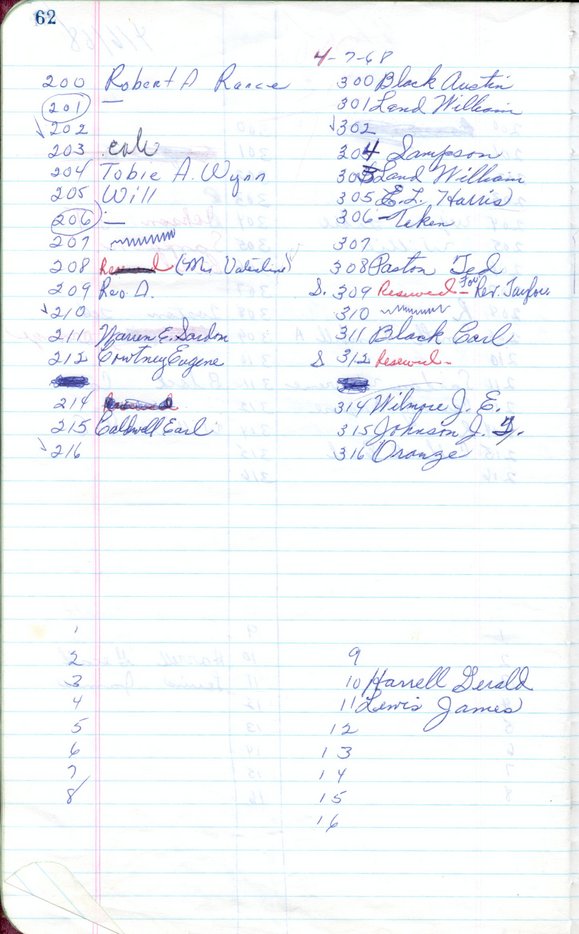 62
4-7-68
200 Robert A Rance
201 —
202
203 cole
204 Tobie A. Wynn
205 Will
206 —
207
208 Reserved (Mr. Valentine)
209 Rev A.
210
211 Warren E. Sardon
212 Courtney Eugene
214 Reserved
215 Caldwell Earl
216
300 Black Austin
301 Land William
302
304 Sampson
303 Land William
305 E. L. Harris
306 - Taken
307
308 Paston Ted
S. 309 Reserved - For Rev. Taylor
310
311 Black Carl
S 312 Reserved -
314 Wilmore J. E.
315 Johnson J. T.
316 Orange
1
2
3
4
5
6
7
8
9
10 Harrell Gerald
11 Lewis James
12
13
14
15
16